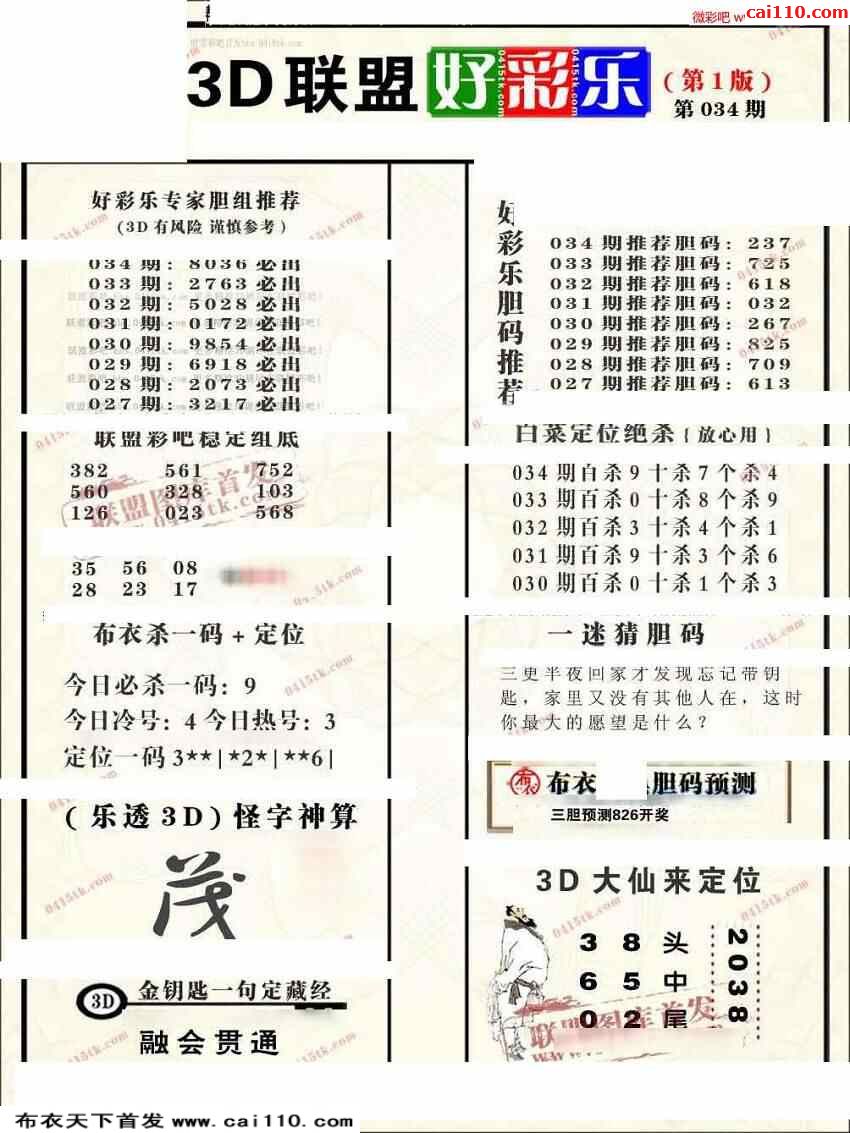 微彩吧 w
cai110.com
3D联盟好彩乐
(第1版)
第034期
好彩乐专家胆组推荐
(3D有风险 谨慎参考)
034期: 8036必出
033期: 2763必出
032期: 5028必出
031期: 0172必出
030期: 9854必出
029期: 6918必出
028期: 2073必出
027期: 3217必出
联盟彩吧稳定组底
382 561 752
560 328 103
126 023 568
35 56 08
28 23 17
布衣杀一码+定位
今日必杀一码: 9
今日冷号: 4 今日热号: 3
定位一码 3**|*2*|**6|
(乐透3D)怪字神算
茂
3D 金钥匙一句定藏经
融会贯通
好彩乐胆码推荐
034期推荐胆码: 237
033期推荐胆码: 725
032期推荐胆码: 618
031期推荐胆码: 032
030期推荐胆码: 267
029期推荐胆码: 825
028期推荐胆码: 709
027期推荐胆码: 613
白菜定位绝杀{放心用}
034期百杀9十杀7个杀4
033期百杀0十杀8个杀9
032期百杀3十杀4个杀1
031期百杀9十杀3个杀6
030期百杀0十杀1个杀3
一迷猜胆码
三更半夜回家才发现忘记带钥
匙，家里又没有其他人在，这时
你最大的愿望是什么？
布衣 胆码预测
三胆预测826开奖
3D大仙来定位
3 8 头
6 5 中
0 2 尾
2038
联盟图库首发
0415tk.com
布衣天下首发 www.cai110.com